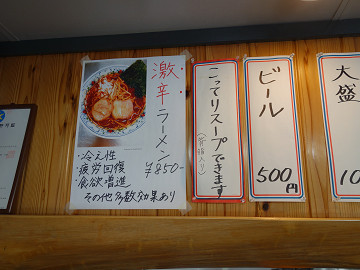 激辛ラーメン
¥850-
・冷え性
・疲労回復
・食欲増進
その他多数効果あり
こってりスープできます
(背脂入り)
ビール
500円
大盛
10